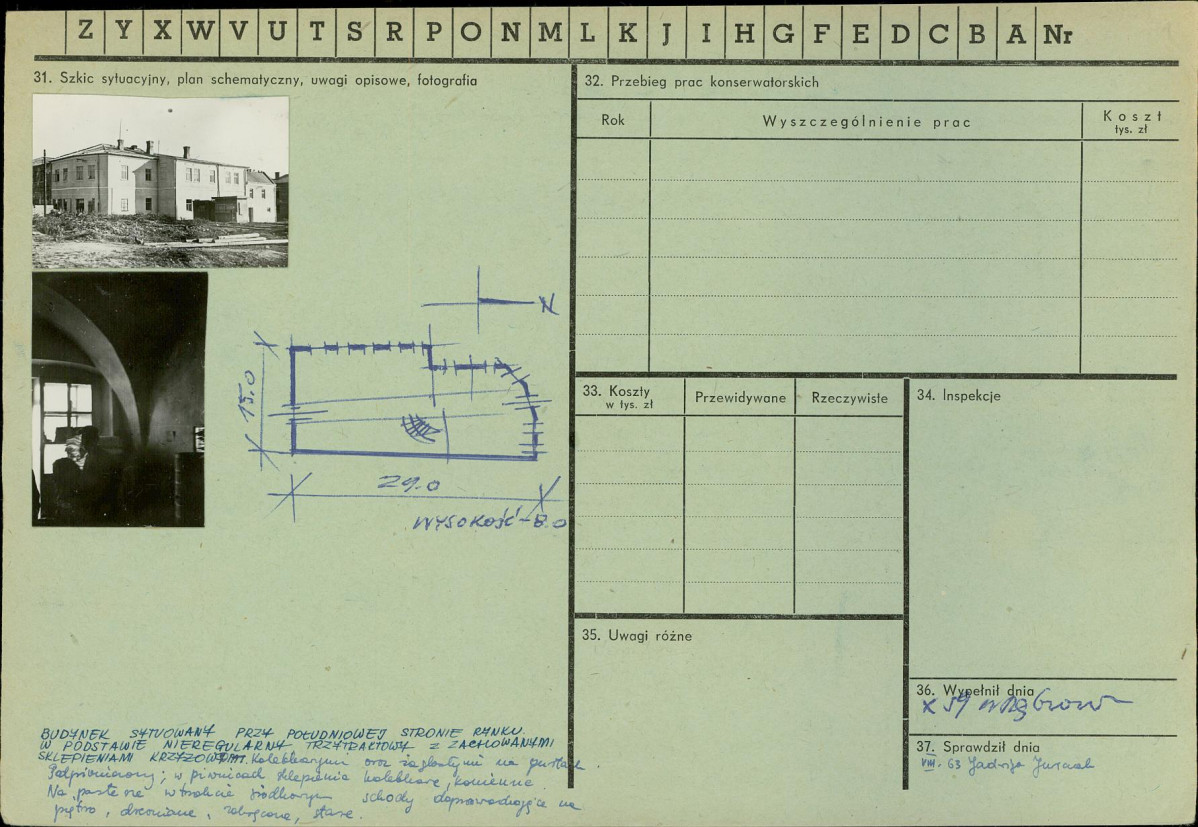 Z Y X W V U T S R P O N M L K J I H G F E D C B A Nr
31. Szkic sytuacyjny, plan schematyczny, uwagi opisowe, fotografia
N
15.0
29.0
WYSOKOŚĆ - 8.0
BUDYNEK SYTUOWANY PRZY POŁUDNIOWEJ STRONIE RYNKU.
W PODSTAWIE NIEREGULARNY TRZYTRAKTOWY Z ZACHOWANYMI
SKLEPIENIAMI KRZYŻOWYMI. Kolebkowymi oraz żaglastymi na gurtach.
Podpiwniczony; w piwnicach sklepienia kolebkowe, kamienne.
Na parterze w trakcie środkowym schody doprowadzające na
piętro, drewniane, stare.
32. Przebieg prac konserwatorskich
Rok Wyszczególnienie prac Koszt
tys. zł
33. Koszty
w tys. zł Przewidywane Rzeczywiste
34. Inspekcje
35. Uwagi różne
36. Wypełnił dnia
X 59
37. Sprawdził dnia
VIII. 63 Jadwiga